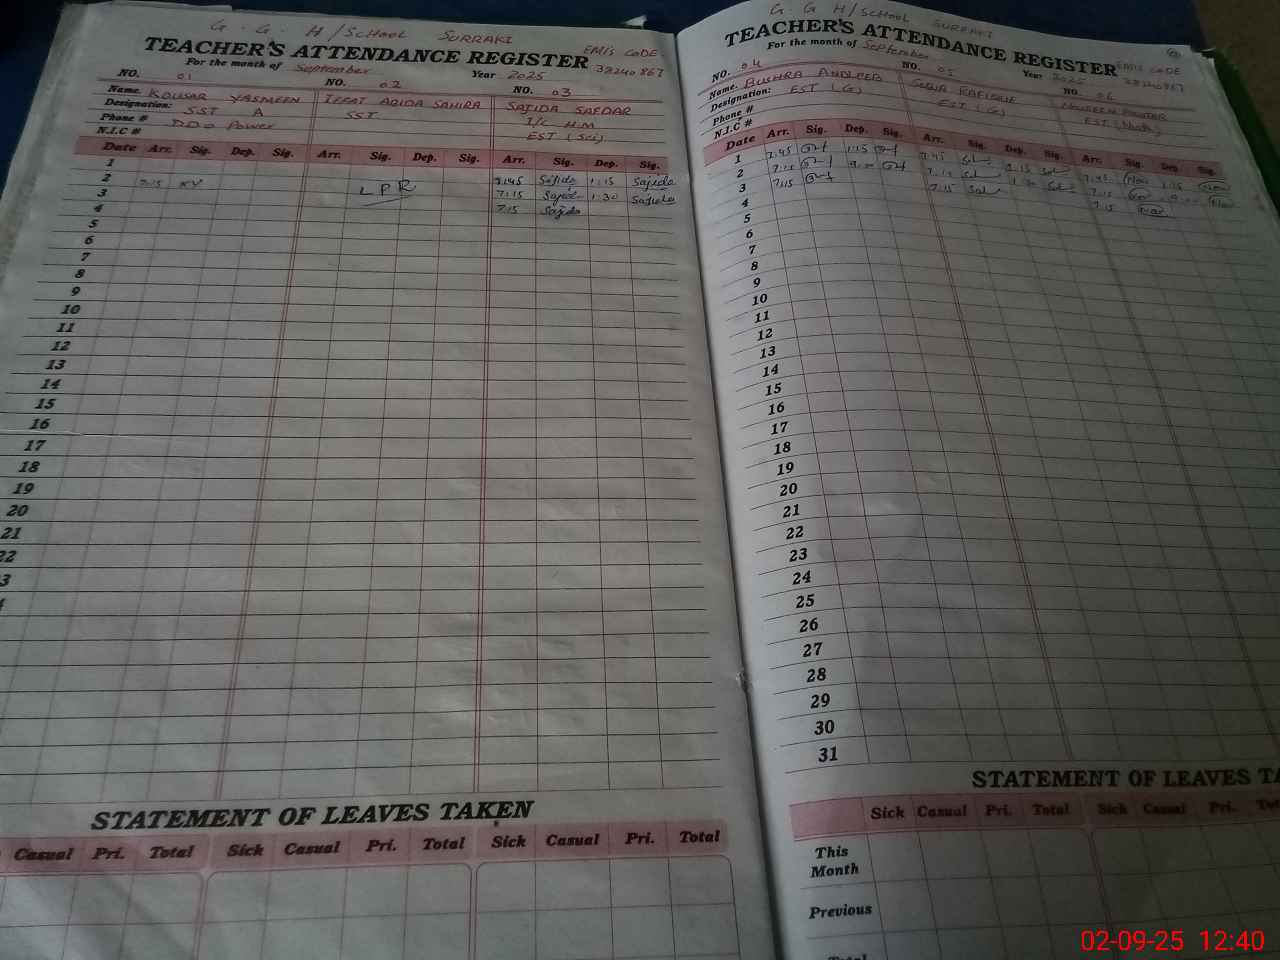 G. G. H/SCHOOL SURRAKI
TEACHER'S ATTENDANCE REGISTER
EMIS CODE
For the month of September Year 2025
NO. 01 NO. 02 NO. 03
Name. KOUSAR YASMEEN SAJIDA SAFDAR
Designation: SST A SST I/C H.M
Phone # DDO Power EST (Sci)
N.I.C #
Date Arr. Sig. Dep. Sig. Arr. Sig. Dep. Sig. Arr. Sig. Dep. Sig.
1 7:45 Sajida 1:15 Sajida
2 7:15 KY LPR 7:15 Sajida 1:30 Sajida
3 7:15 Sajida
4
5
6
7
8
9
10
11
12
13
14
15
16
17
18
19
20
21
22
3
STATEMENT OF LEAVES TAKEN
Casual Pri. Total Sick Casual Pri. Total Sick Casual Pri. Total
G. G H/SCHOOL SURRAKI
TEACHER'S ATTENDANCE REGISTER
EMIS CODE
For the month of September Year 2025
NO. 04 NO. 05 NO. 06
Name. BUSHRA ANDLEEB RAFIQUE
Designation: EST (G) EST (G) EST (Math)
Phone #
N.I.C #
Date Arr. Sig. Dep. Sig. Arr. Sig. Dep. Sig. Arr. Sig. Dep. Sig.
1 7:45 1:15 7:45 1:15 7:45 1:15
2 7:15 7:15 1:30 7:15
3 7:15 7:15 7:15
4
5
6
7
8
9
10
11
12
13
14
15
16
17
18
19
20
21
22
23
24
25
26
27
28
29
30
31
STATEMENT OF LEAVES TA
Sick Casual Pri. Total Sick Casual Pri. Tot
This
Month
Previous
Total
02-09-25 12:40